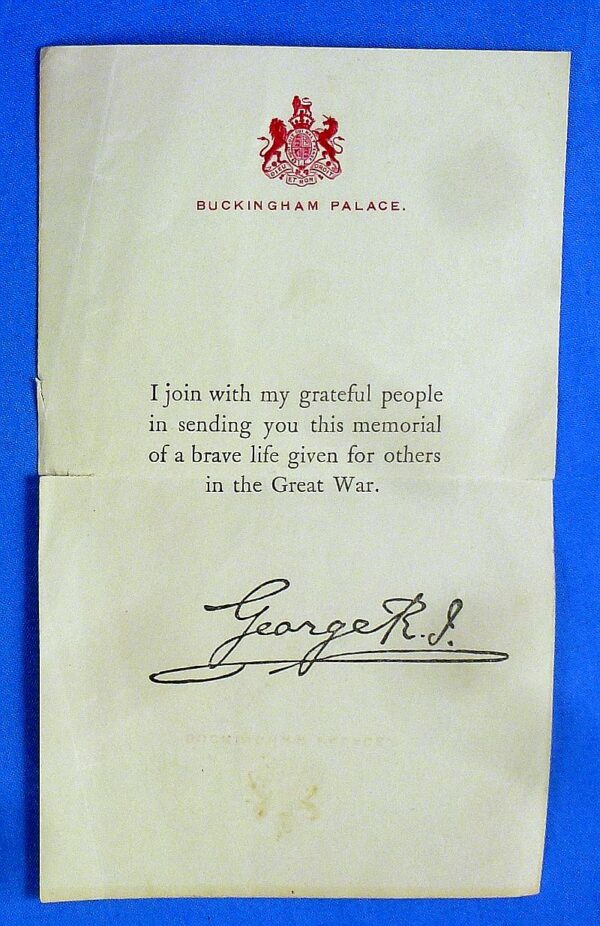 DIEU ET MON DROIT
BUCKINGHAM PALACE.
I join with my grateful people
in sending you this memorial
of a brave life given for others
in the Great War.
George R.I.